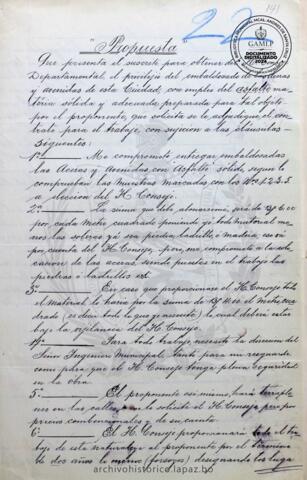 22
141
GAMLP
DOCUMENTO
DIGITALIZADO
2024
"Propuesta"
Que presenta el suscrito para obtener del
Departamental, el privilejio del embaldosado de aceras
y avenidas de esta Ciudad, con empleo del asfalto, ma-
teria sólida y adecuada, preparada para tal objeto
por el proponente, que solicita se le adjudique el con-
trato para el trabajo, con sujecion a las clausulas
siguientes:
1a Me comprometo entregar embaldosadas
las Aceras y Avenidas con Asfalto solido, segun lo
comprueban las Muestras marcadas con los Nos 1,2,3,5
a eleccion del H. Consejo.
2a La suma que debe abonarseme, será de
por cada Metro cuadrado poniendo yo todo material me-
nos las soleras ya sea piedra, ladrillo ó madera, se
por cuenta del H. Consejo, pero, me comprometo a la colo-
cacion de las aceras siendo puestas en el trabajo las
piedras ó ladrillos
3a En caso que proporcionare el H. Consejo todo
el material lo haria por la suma de el metro cua-
drado (es decir todo lo que yo necesite) lo cual deberá estar
bajo la vigilancia del H. Consejo.
4a Para todo trabajo necesito la direccion del
Señor Ingeniero Municipal, tanto para mi resguardo
como para que el H. Consejo tenga plena seguridad
en la obra.
5a El proponente asi mismo, hará terraple-
nes en las calles, que le solicite el H. Consejo por pre-
cios convencionales de su cuenta.
6a El H. Consejo proporcionará todo el tra-
bajo de esta naturaleza al proponente por el termino
de dos años lo menos (forzoso) designando los luga
archivohistorico.lapaz.bo